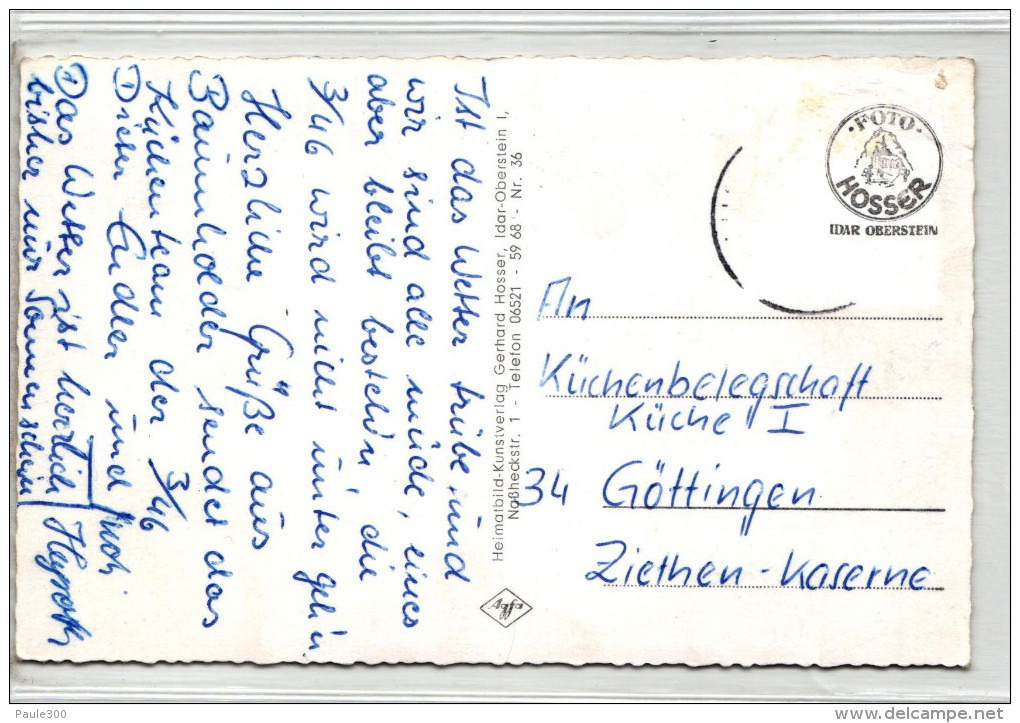 Ist das Wetter trübe und
wir sind alle müde, eines
aber bleibt besteh'n die
3/46 wird nicht unter geh'n
Herzliche Grüße aus
Baumholder sendet das
Küchenteam der 3/46
Dieter und
Das Wetter ist herrlich
bisher nur Sonnenschein
Heimatbild-Kunstverlag Gerhard Hosser, Idar-Oberstein I,
Naßheckstr. 1 - Telefon 06521 - 59 68 - Nr. 36
Agfa
·FOTO·
HOSSER
IDAR OBERSTEIN
An
Küchenbelegschaft
Küche I
34 Göttingen
Ziethen-Kaserne
Paule300
delcampe.net